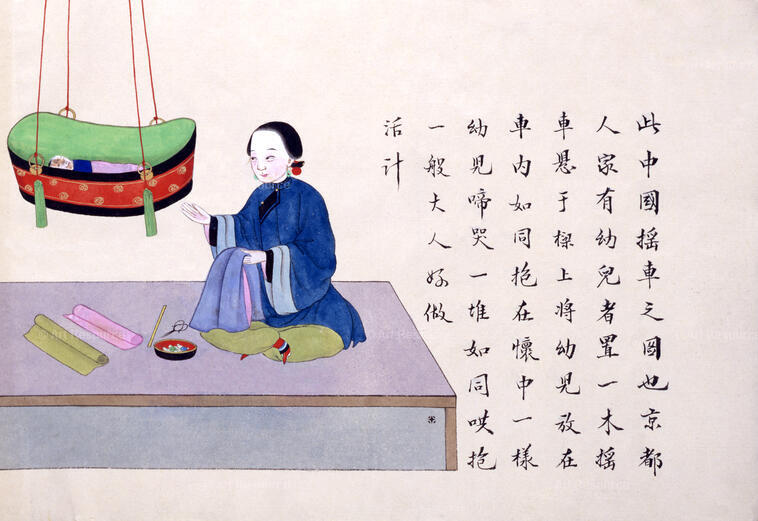 此中國搖車之圖也京都
人家有幼兒者置一木搖
車懸于樑上將幼兒放在
車內如同抱在懷中一樣
幼兒啼哭一推如同哄抱
一般大人好做
活計